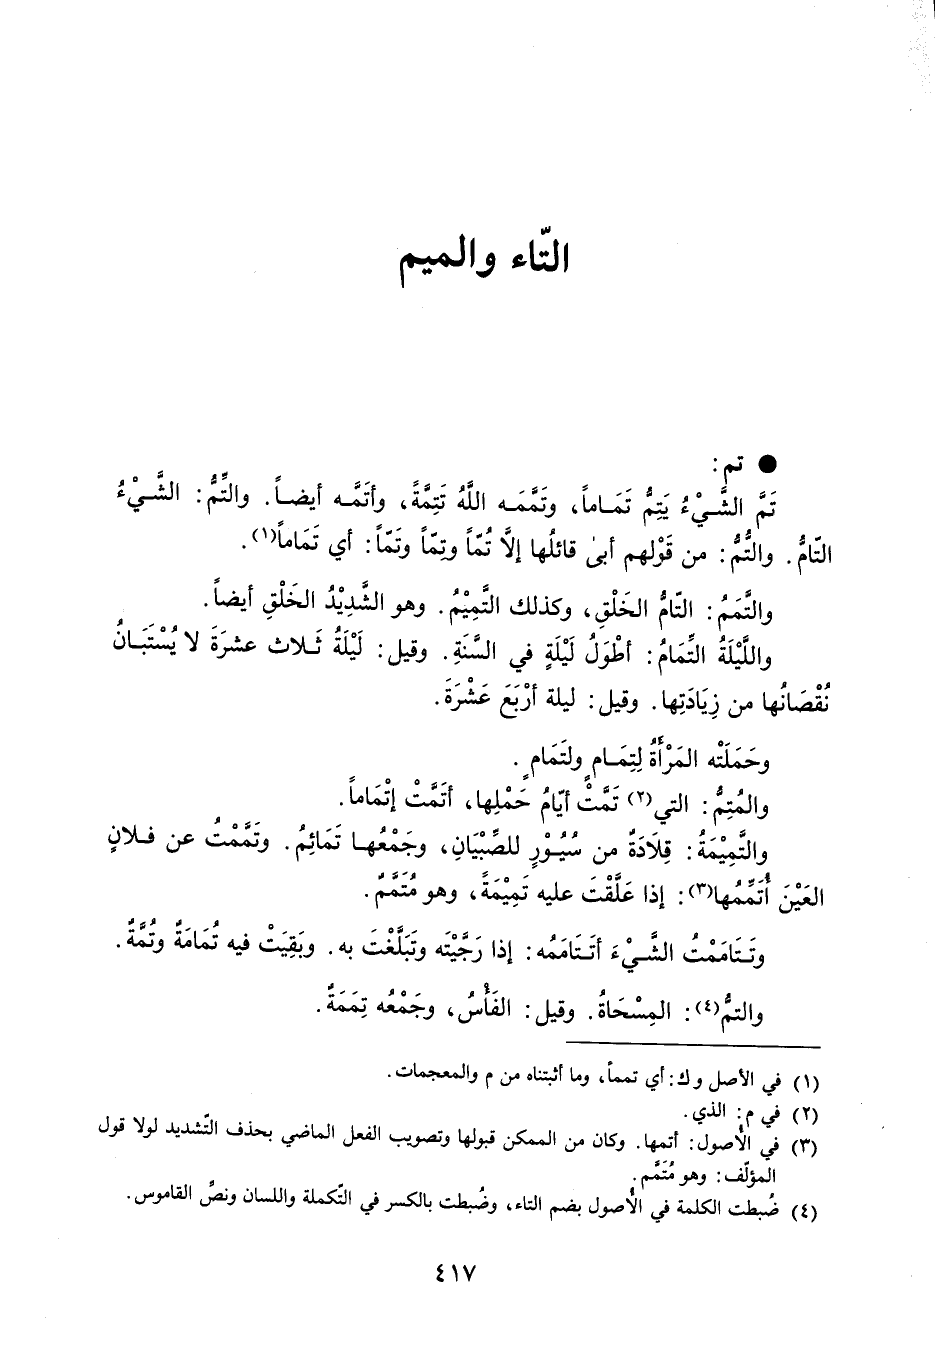 التّاء والميم
● تم:
تَمَّ الشَّيْءُ يَتِمُّ تَمَاماً، وتَمَّمَه اللَّهُ تَتِمَّةً، وأتَمَّه أيضاً. والتِّمُّ: الشَّيْءُ
التّامُّ. والتُّمُّ: من قَوْلهم أبىٰ قائلُها إلَّا تُمّاً وتِمّاً وتَمّاً: أي تَمَاماً(١).
والتَّمَمُ: التّامُّ الخَلْقِ، وكذلك التَّمِيْمُ. وهو الشَّدِيْدُ الخَلْقِ أيضاً.
واللَّيْلَةُ التِّمَامُ: أطْوَلُ لَيْلَةٍ في السَّنَةِ. وقيل: لَيْلَةُ ثَلاث عشرَةَ لا يُسْتَبَانُ
نُقْصَانُها من زِيَادَتِها. وقيل: ليلة أرْبَعَ عَشْرَةَ.
وحَمَلَتْه المَرْأَةُ لِتِمَامٍ ولتَمَامٍ.
والمُتِمُّ: التي(٢) تَمَّتْ أيّامُ حَمْلِها، أتَمَّتْ إتْمَاماً.
والتَّمِيْمَةُ: قِلَادَةٌ من سُيُوْرٍ للصِّبْيَانِ، وجَمْعُها تَمَائِمُ. وتَمَّمْتُ عن فلانٍ
العَيْنَ أُتَمِّمُها(٣): إذا عَلَّقْتَ عليه تَمِيْمَةً، وهو مُتَمَّمٌ.
وتَتَامَمْتُ الشَّيْءَ أتَتَامَمُه: إذا رَجَّيْتَه وتَبَلَّغْتَ به. وبَقِيَتْ فيه تُمَامَةٌ وتُمَّةٌ.
والتمُّ(٤): المِسْحَاةُ. وقيل: الفَأْسُ، وجَمْعُه تِمَمَةٌ.
(١) في الأصل و ك: أي تمماً، وما أثبتناه من م والمعجمات.
(٢) في م: الذي.
(٣) في الأصول: أتمها. وكان من الممكن قبولها وتصويب الفعل الماضي بحذف التّشديد لولا قول
المؤلّف: وهو مُتَمَّم.
(٤) ضُبطت الكلمة في الأصول بضم التاء، وضُبطت بالكسر في التّكملة واللسان ونصِّ القاموس.
٤١٧